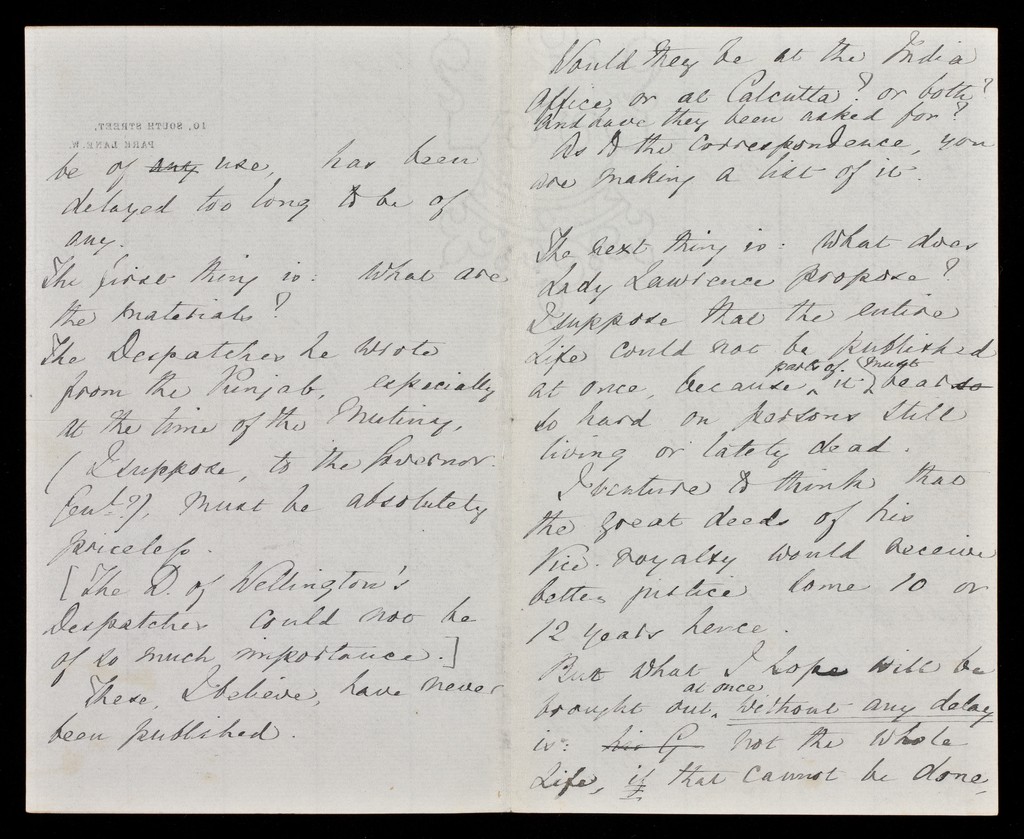 10, SOUTH STREET,
PARK LANE. W.
be of any use, has been
delayed too long to be of
any.
The first thing is: What are
the materials?
The Despatches he wrote
from the Punjab, especially
at the time of the Mutiny,
(I suppose, to the Governor
Genl?), must be absolutely
priceless.
[The D. of Wellington's
Despatches could not be
of so much importance.]
These, I believe, have never
been published.
Would they be at the India
Office, or at Calcutta? or both?
And have they been asked for?
As to the correspondence, you
are making a list of it.
The next thing is: What does
Lady Lawrence propose?
I suppose that the entire
Life could not be published
at once, because parts of it must bear so
so hard on persons still
living or lately dead.
I venture to think that
the great deeds of his
Vice-royalty would receive
better justice some 10 or
12 years hence.
But what I hope will be
brought out at once, without any delay
is: his G not the whole
Life, if that cannot be done,